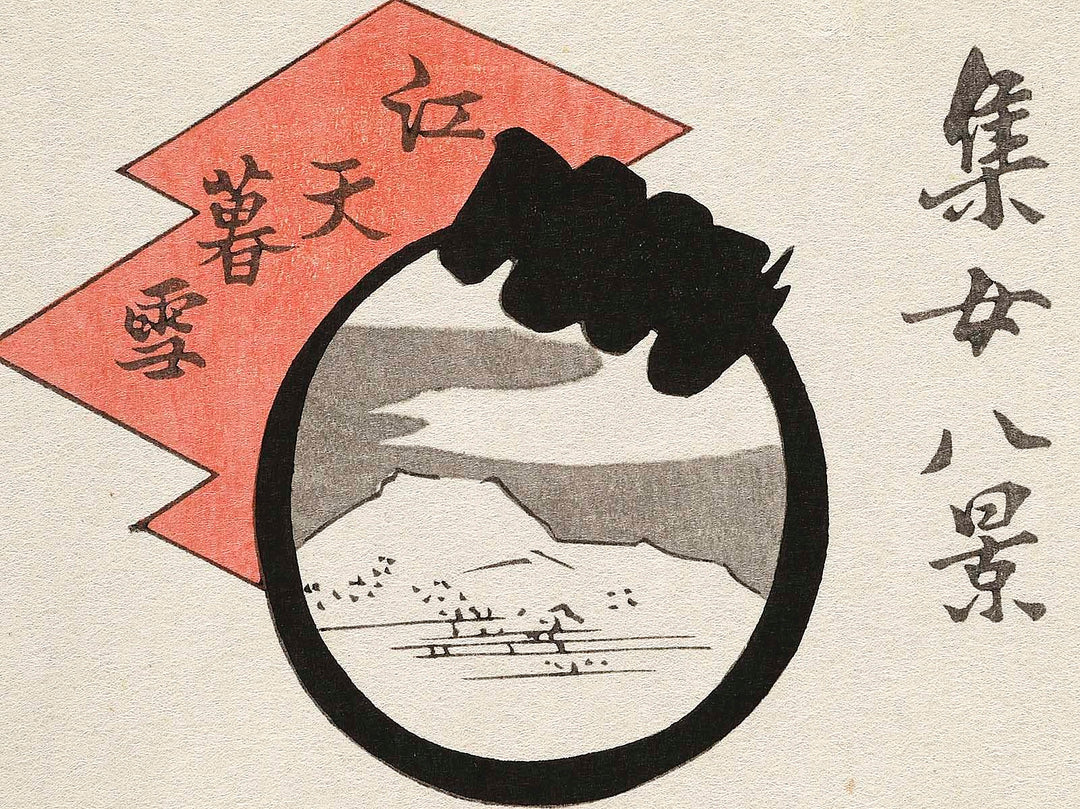 集女八景
江天暮雪